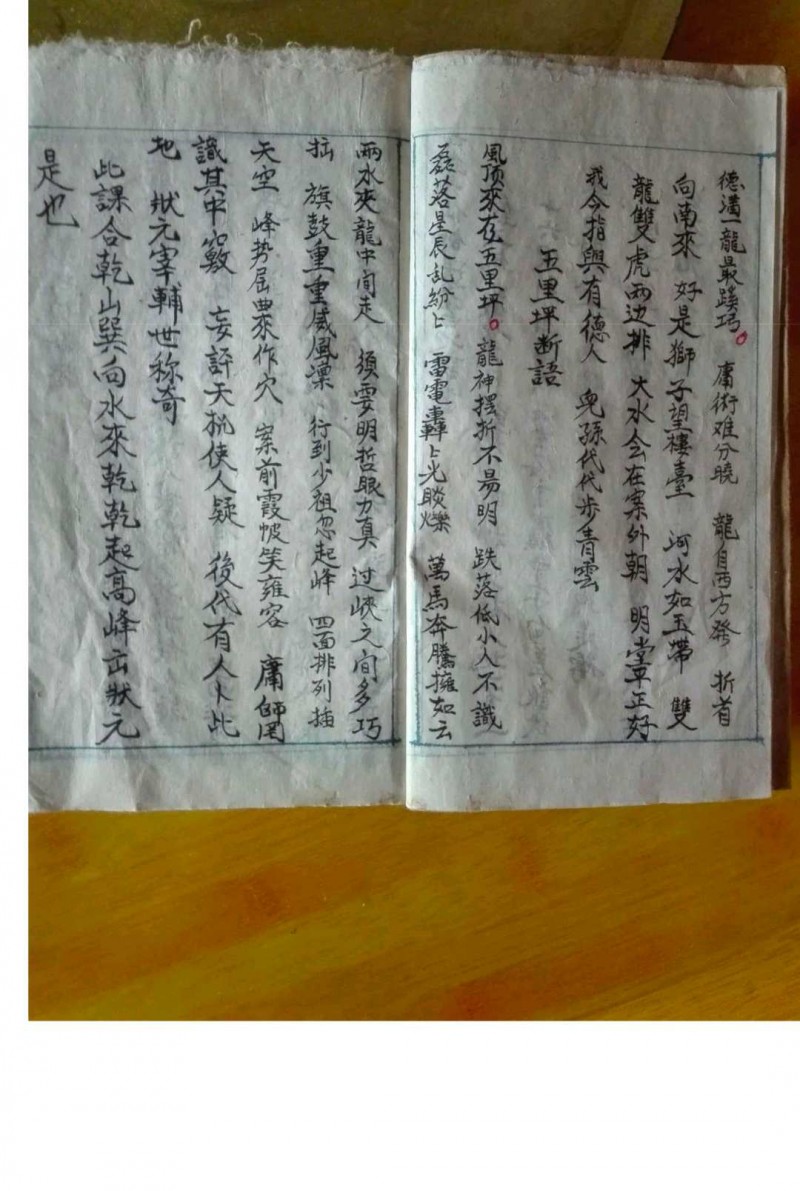 德溝一龍最蹊巧。 庸術难分曉 龍自西方發 折首
向南來 好是獅子望樓臺 河水如玉帶 雙
龍雙虎兩边排 大水会在案外朝 明堂正好
我今指與有德人 兒孫代代步青雲
五里坪断語
風頂來在五里坪。龍神摆折不易明 跌落低小人不識
磊落星辰乱紛〻 雷電轟〻光睒爍 萬馬奔騰擁如云
兩水夾龍中间走 須要明哲眼力真 过峽之间多巧
拙 旗鼓重重威風凜 行到少祖忽起峰 四面排列插
天空 峰势屈曲來作穴 案前霞帔笑雍容 庸師罔
識其中竅 妄評天机使人疑 後代有人卜此
地 狀元宰輔世称奇
此課合乾山巽向水來乾乾起高峰出狀元
是也